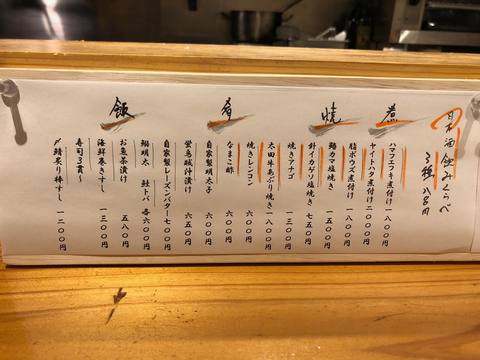 日本酒飲みくらべ
3種八八〇円
煮
ハマフエフキ煮付け 一八〇〇円
ヤイトハタ煮付け 二〇〇〇円
脂ボウズ煮付け 一八〇〇円
焼
鰤カマ塩焼き 一五〇〇円
針イカゲソ塩焼き 七五〇円
焼きアナゴ 一三〇〇円
太田牛あぶり焼き 一八〇〇円
焼きレンコン 六〇〇円
肴
なまこ酢 六〇〇円
自家製明太子 六〇〇円
蛍烏賊沖漬け 六五〇円
自家製レーズンバター 七〇〇円
鰯明太 鮭トバ 各六〇〇円
飯
お魚茶漬け 五八〇円
海鮮巻きすし 一三〇〇円
寿司3貫〜
〆鯖炙り棒すし 一二〇〇円